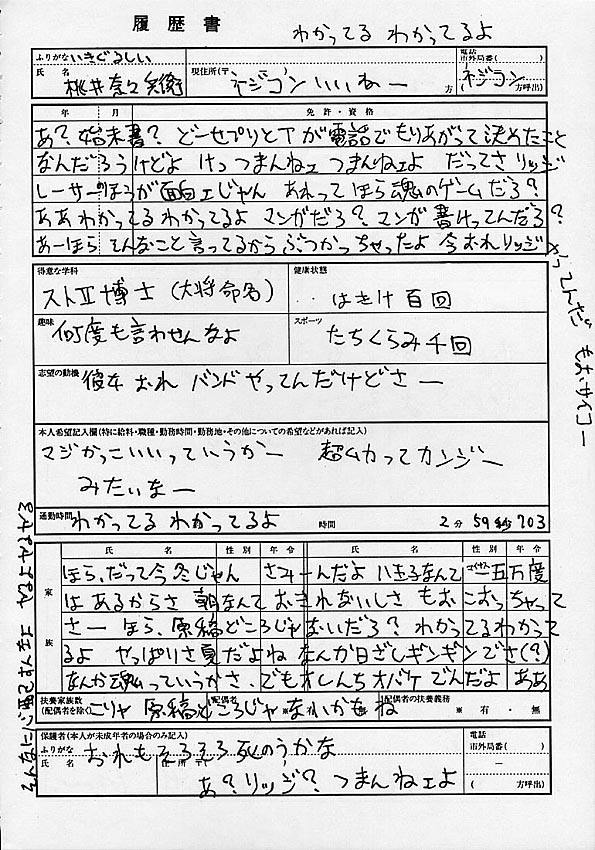 履歴書
わかってる わかってるよ
ふりがな いきぐるしい
氏名 桃井奈々
現住所(〒 ) ネジコン いいねー 方
電話 市外局番( )
ネジコン
( 方呼出)
年 月 免許・資格
あ?始末書? どーせプリとTが電話でもりあがって決めたこと
なんだろうけどよ けっ つまんねェ つまんねェよ だってさ リッジ
レーサーのほうが面白エじゃん あれってほら魂のゲームだろ?
ああわかってるわかってるよ マンガだろ? マンガ書けってんだろ?
あーほら そんなこと言ってるからぶつかっちゃったよ 今おれリッジ
やってんだ もおサイコー
得意な学科
ストⅡ博士 (大将命名)
健康状態
はきけ百回
趣味
何度も言わせんなよ
スポーツ
たちくらみ千回
志望の動機
彼女 おれ バンドやってんだけどさー
本人希望記入欄(特に給料・職種・勤務時間・勤務地・その他についての希望などがあれば記入)
マジかっこいいっていうかー 超ムカってカンジー
みたいなー
通勤時間 わかってる わかってるよ 時間 2分 59秒703
家族
氏名 性別 年令 氏名 性別 年令
ほら、だって今冬じゃん さみーんだよ 八王子なんて 一五万度
はあるからさ 朝なんておきれないしさ もおこおっちゃって
さー ほら、原稿どころじゃないだろ? わかってるわかって
るよ やっぱりさ夏だよね なんか日ざしギンギンでさ(?)
なんか魂っていうかさ、でもオレんちオバケでんだよ ああ
扶養家族数(配偶者を除く) 配偶者 配偶者の扶養義務
こりゃ 原稿どころじゃないかもね
※ ※ 有・無
保護者(本人が未成年者の場合のみ記入)
ふりがな
氏名
おれもそろそろ死のうかな
あ?リッジ? つまんねェよ
電話 市外局番( )
( 方呼出)
そんなに心配すんなよ やるよやるよ